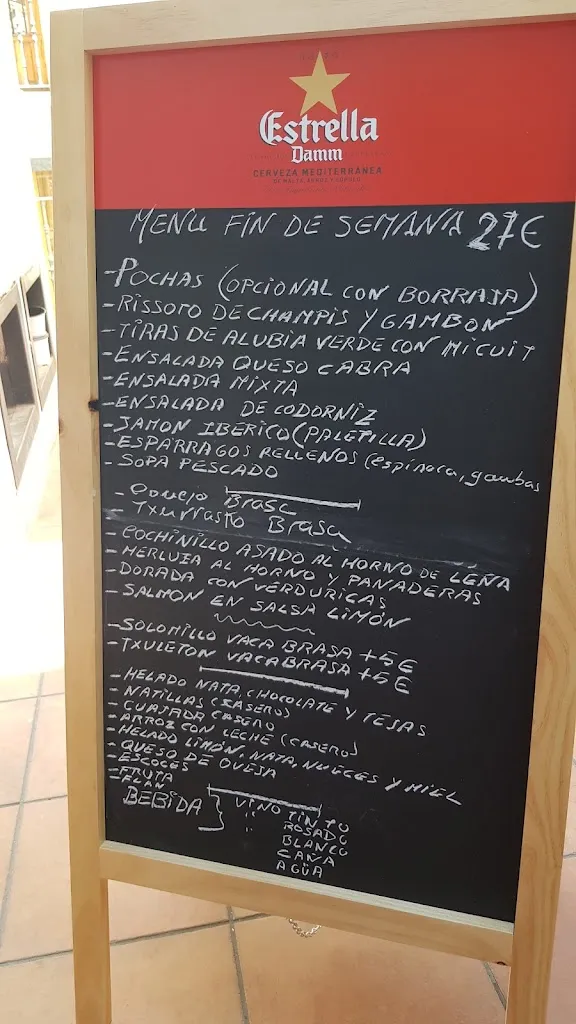 Estrella
Damm
CERVEZA MEDITERRÁNEA
MENU FIN DE SEMANA 27€
-POCHAS (OPCIONAL CON BORRAJA)
-RISSOTO DE CHAMPIS Y GAMBON
-TIRAS DE ALUBIA VERDE CON MICUIT
-ENSALADA QUESO CABRA
-ENSALADA MIXTA
-ENSALADA DE CODORNIZ
-JAMON IBERICO (PALETILLA)
-ESPARRAGOS RELLENOS (espinaca, gambas
-SOPA PESCADO
-Conejo Brasa
-Txurrasto Brasa
-COCHINILLO ASADO AL HORNO DE LEÑA
-MERLUZA AL HORNO Y PANADERAS
-DORADA CON VERDURICAS
-SALMON EN SALSA LIMÓN
-SOLOMILLO VACA BRASA +5€
-TXULETON VACA BRASA +5€
-HELADO NATA, CHOCOLATE Y TEJAS
-NATILLAS (CASERO)
-CUAJADA CASERO
-ARROZ CON LECHE (CASERO)
-HELADO LIMÓN, NATA, NUECES Y MIEL
-QUESO DE OVEJA
-ESCOCES
-FRUTA
-FLAN
BEBIDA } VINO TINTO
" ROSADO
BLANCO
CAÑA
AGÜA